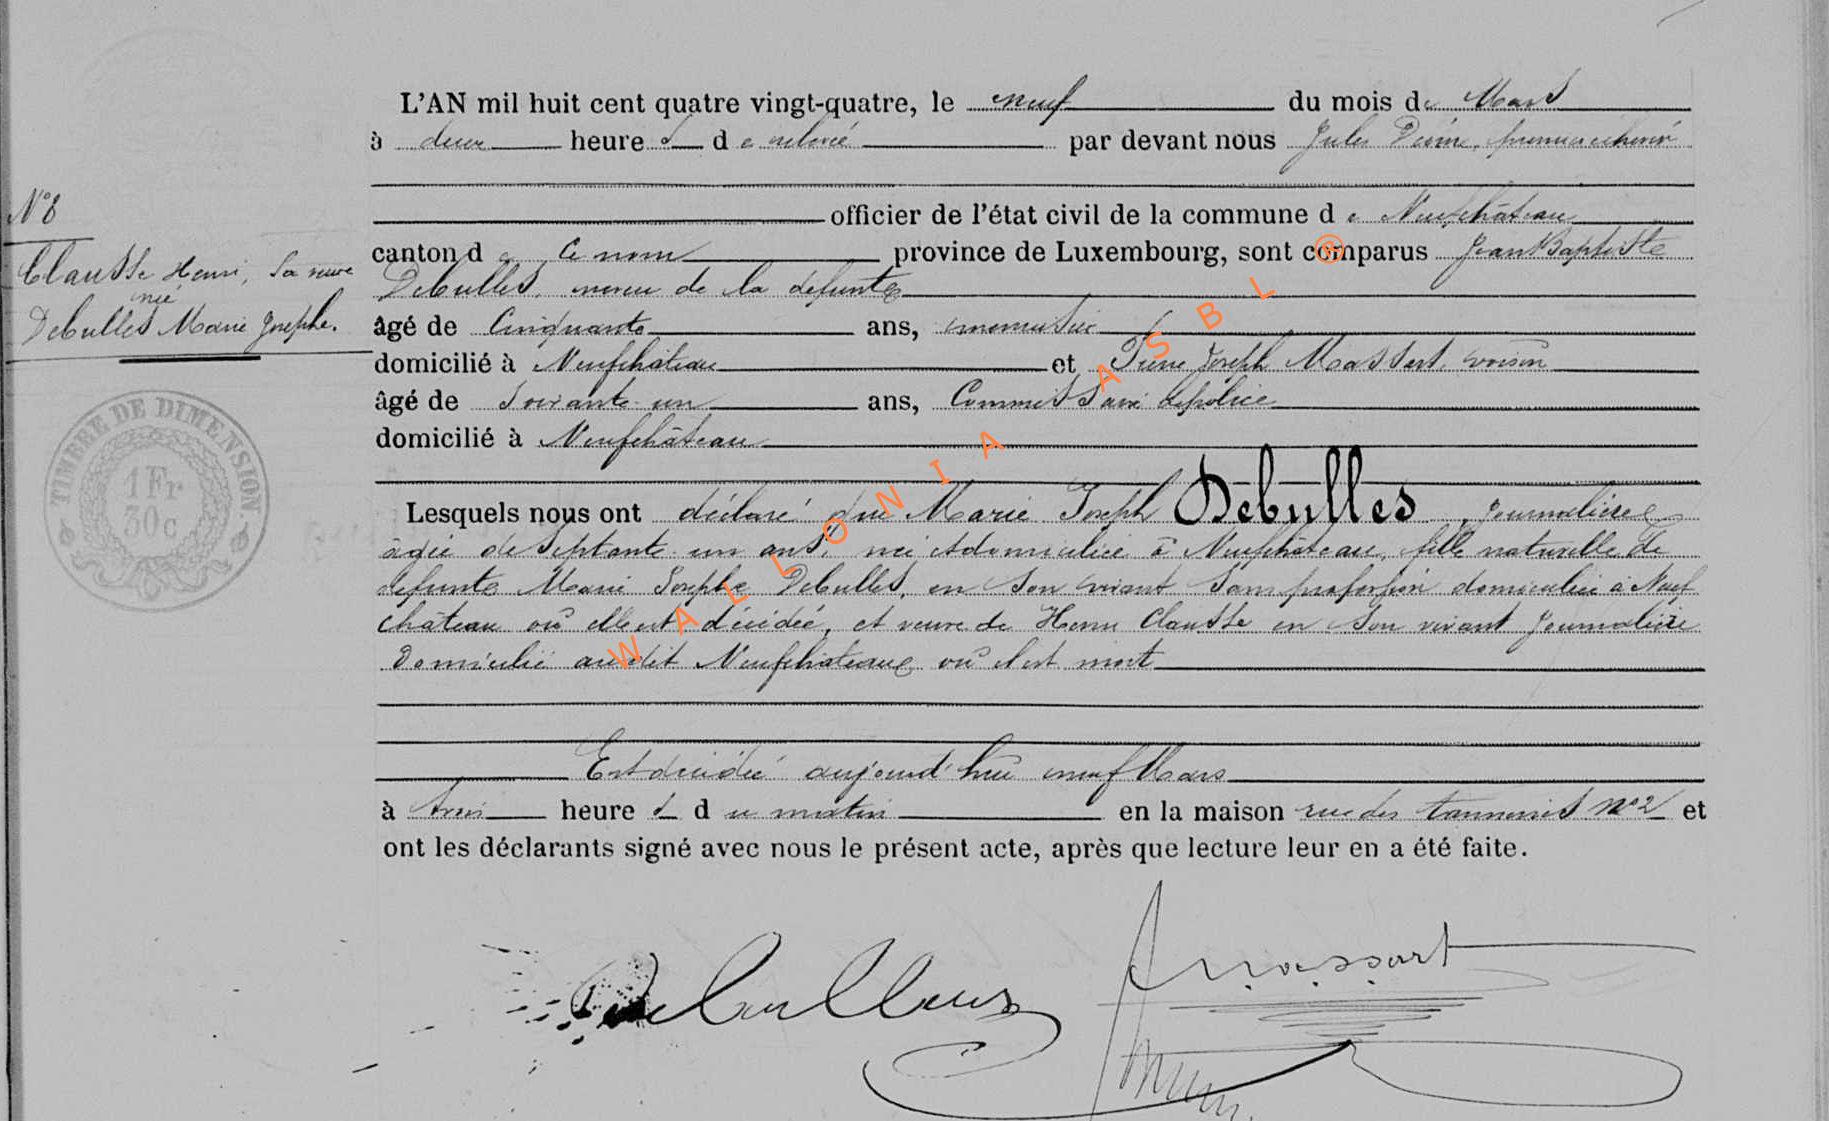 L'AN mil huit cent quatre vingt-quatre, le neuf du mois de Mars
à deux heures de relevé par devant nous Jules premier échevin
officier de l'état civil de la commune de Neufchâteau
canton de ce nom province de Luxembourg, sont comparus Jean Baptiste
Debulles, neveu de la défunte
âgé de Cinquante ans, menuisier
domicilié à Neufchâteau et Pierre Joseph Massart, voisin
âgé de Soixante-un ans, Commissaire de police
domicilié à Neufchâteau
Lesquels nous ont déclaré que Marie Joseph Debulles, journalière
âgée de Septante-un ans, née et domiciliée à Neufchâteau, fille naturelle de
défunte Marie Josephe Debulles, en son vivant sans profession domiciliée à Neuf
château où elle est décédée, et veuve de Henri Clausse en son vivant Journalière
Domicilié au dit Neufchateau où il est mort
Est décédée aujourd'hui neuf Mars
à trois heures du matin en la maison rue des tanneries No 2 et
ont les déclarants signé avec nous le présent acte, après que lecture leur en a été faite.
No 8
Clausse Henri, Sa veuve
née
Debulles Marie Josephe.
TIMBRE DE DIMENSION
1 Fr
30c
WALLONIA ASBL ®
Massart